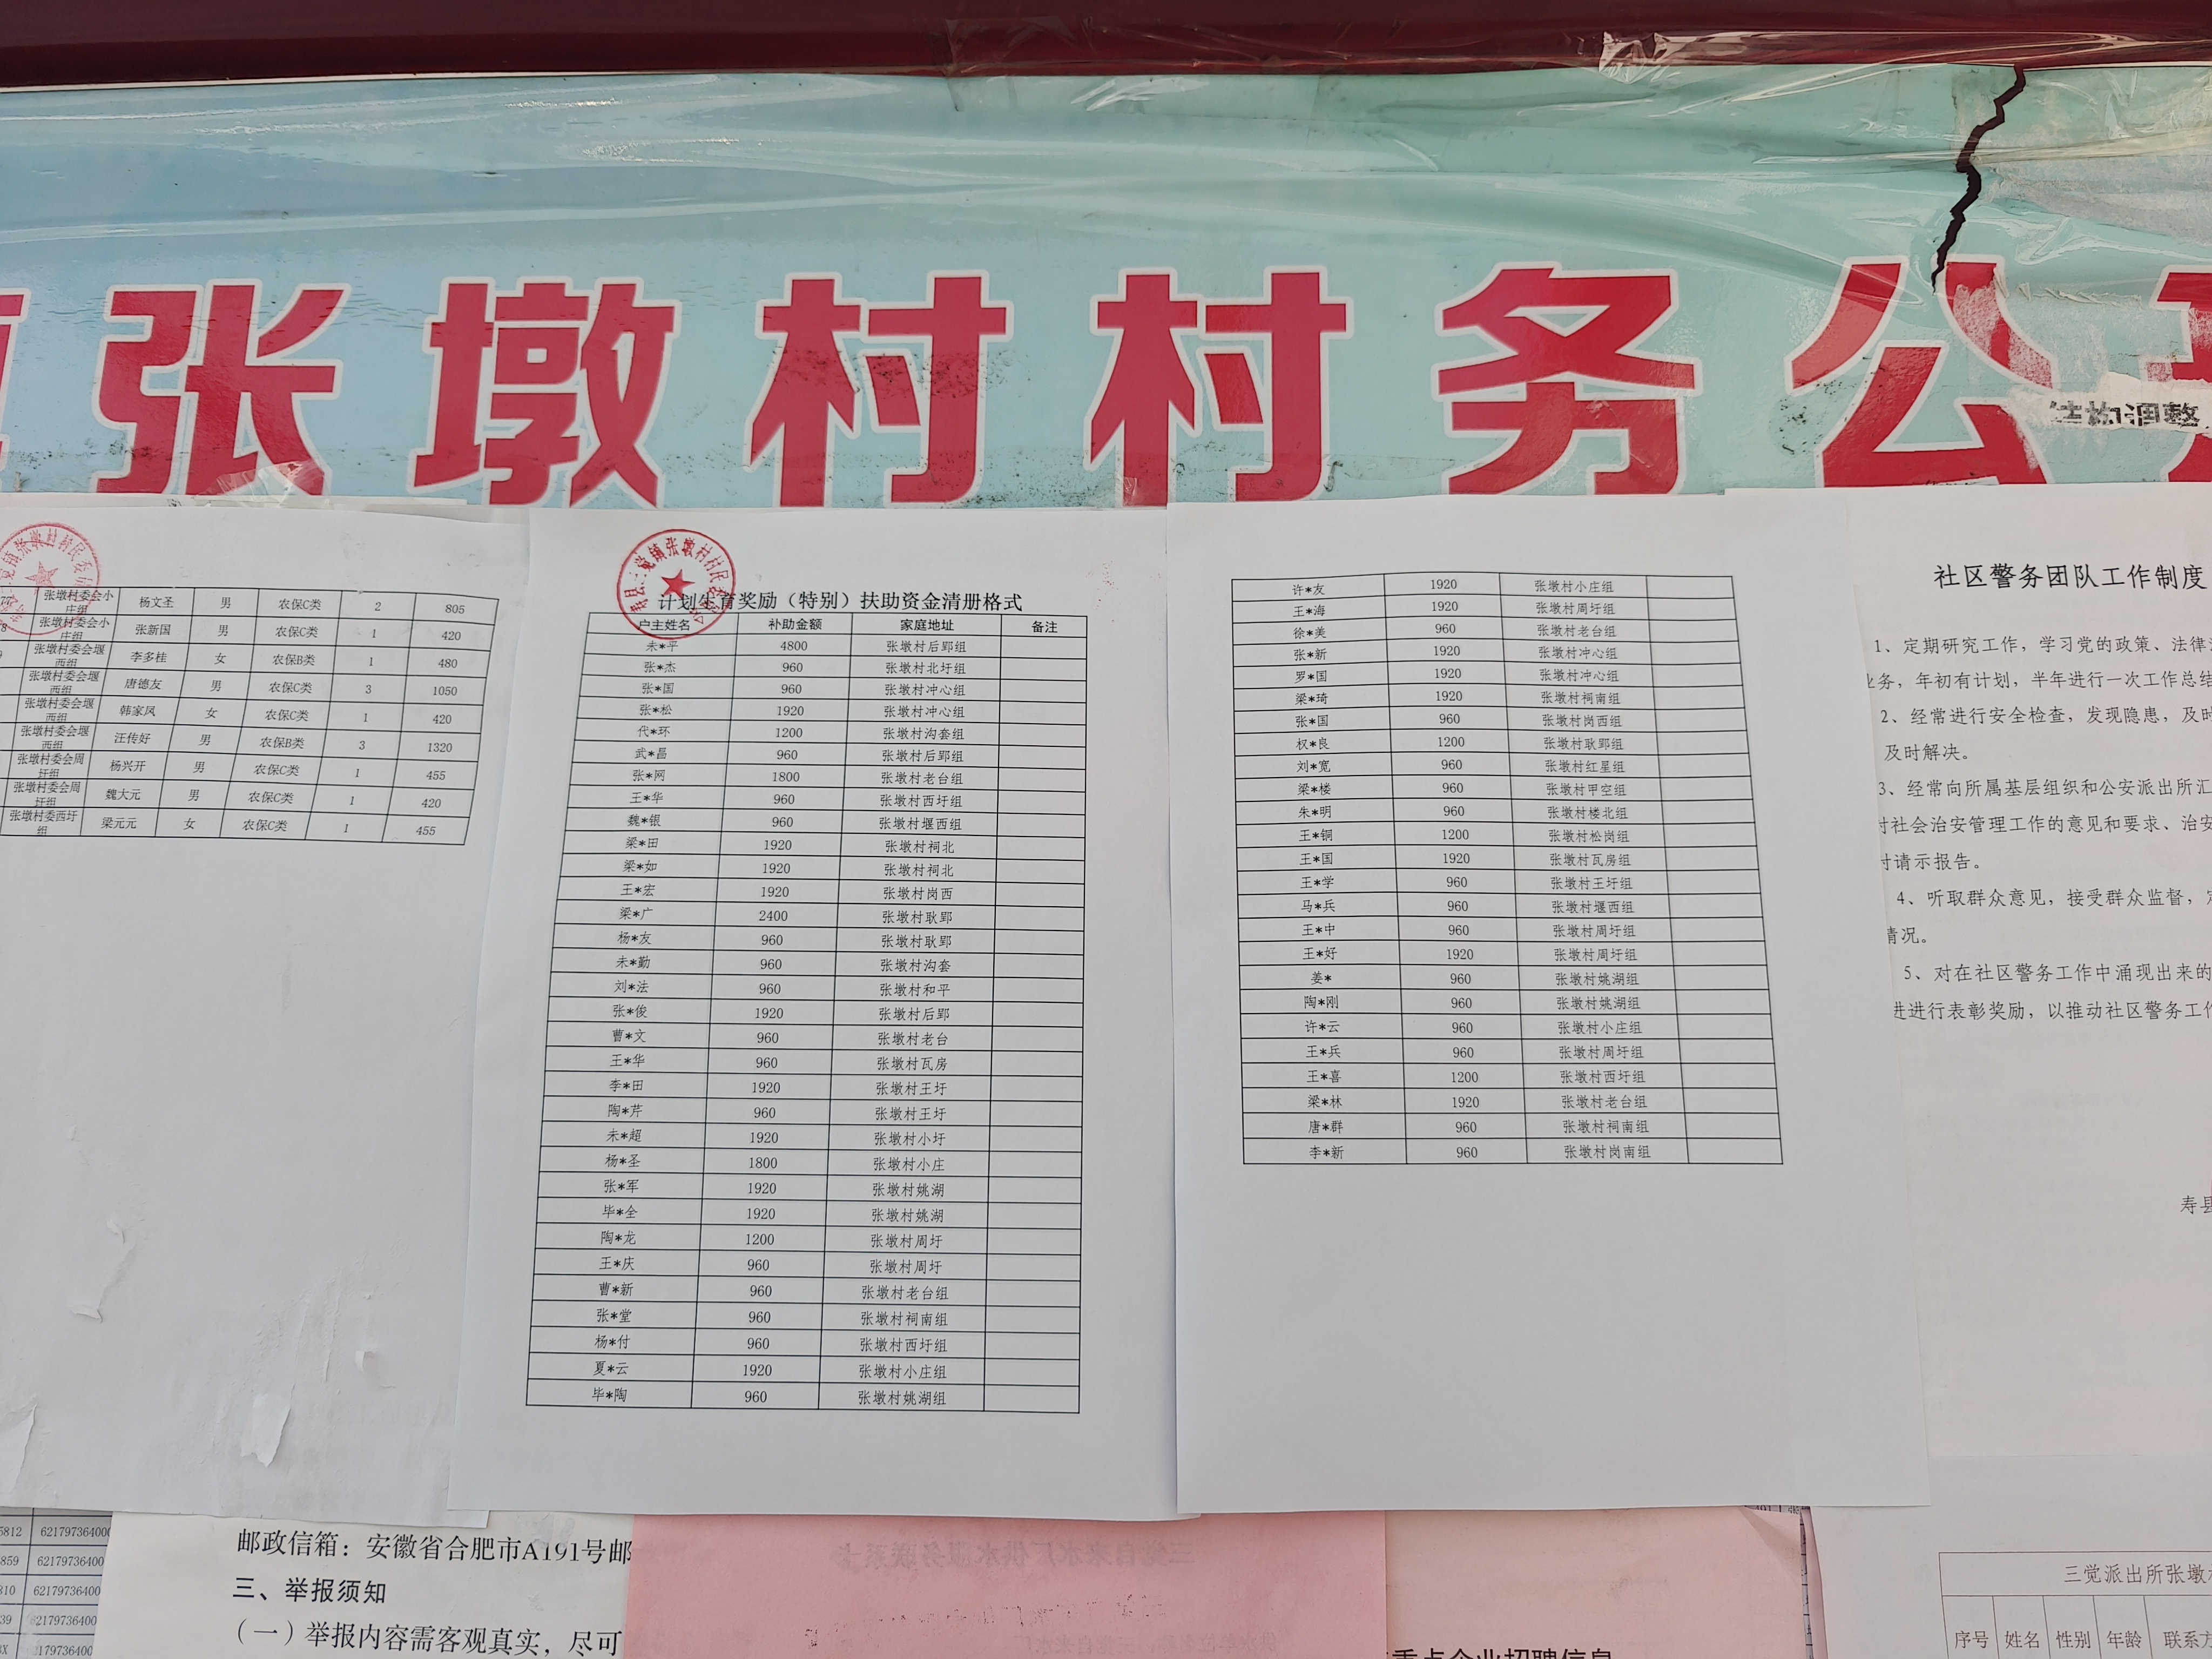 张墩村村务公
结构调整
张墩村委会小庄组 杨文圣 男 农保C类 2 805
8 张墩村委会小庄组 张新国 男 农保C类 1 420
9 张墩村委会堰西组 李多桂 女 农保B类 1 480
张墩村委会堰西组 唐德友 男 农保C类 3 1050
张墩村委会堰西组 韩家凤 女 农保C类 1 420
张墩村委会堰西组 汪传好 男 农保B类 3 1320
张墩村委会周圩组 杨兴开 男 农保C类 1 455
张墩村委会周圩组 魏大元 男 农保C类 1 420
张墩村委西圩组 梁元元 女 农保C类 1 455
计划生育奖励（特别）扶助资金清册格式
户主姓名 补助金额 家庭地址 备注
朱*平 4800 张墩村后郢组
张*杰 960 张墩村北圩组
张*国 960 张墩村冲心组
张*松 1920 张墩村冲心组
代*环 1200 张墩村沟套组
武*昌 960 张墩村后郢组
张*网 1800 张墩村老台组
王*华 960 张墩村西圩组
魏*银 960 张墩村堰西组
梁*田 1920 张墩村祠北
梁*如 1920 张墩村祠北
王*宏 1920 张墩村岗西
梁*广 2400 张墩村耿郢
杨*友 960 张墩村耿郢
朱*勤 960 张墩村沟套
刘*法 960 张墩村和平
张*俊 1920 张墩村后郢
曹*文 960 张墩村老台
王*华 960 张墩村瓦房
李*田 1920 张墩村王圩
陶*芹 960 张墩村王圩
朱*超 1920 张墩村小圩
杨*圣 1800 张墩村小庄
张*军 1920 张墩村姚湖
毕*全 1920 张墩村姚湖
陶*龙 1200 张墩村周圩
王*庆 960 张墩村周圩
曹*新 960 张墩村老台组
张*堂 960 张墩村祠南组
杨*付 960 张墩村西圩组
夏*云 1920 张墩村小庄组
毕*陶 960 张墩村姚湖组
许*友 1920 张墩村小庄组
王*海 1920 张墩村周圩组
徐*美 960 张墩村老台组
张*新 1920 张墩村冲心组
罗*国 1920 张墩村冲心组
梁*琦 1920 张墩村祠南组
张*国 960 张墩村岗西组
权*良 1200 张墩村耿郢组
刘*宽 960 张墩村红星组
梁*楼 960 张墩村甲空组
朱*明 960 张墩村楼北组
王*铜 1200 张墩村松岗组
王*国 1920 张墩村瓦房组
王*学 960 张墩村王圩组
马*兵 960 张墩村堰西组
王*中 960 张墩村周圩组
王*好 1920 张墩村周圩组
姜* 960 张墩村姚湖组
陶*刚 960 张墩村姚湖组
许*云 960 张墩村小庄组
王*兵 960 张墩村周圩组
王*喜 1200 张墩村西圩组
梁*林 1920 张墩村老台组
唐*群 960 张墩村祠南组
李*新 960 张墩村岗南组
社区警务团队工作制度
1、定期研究工作，学习党的政策、法律
业务，年初有计划，半年进行一次工作总结
2、经常进行安全检查，发现隐患，及时
及时解决。
3、经常向所属基层组织和公安派出所汇
对社会治安管理工作的意见和要求、治安
时请示报告。
4、听取群众意见，接受群众监督，定
情况。
5、对在社区警务工作中涌现出来的
进进行表彰奖励，以推动社区警务工作
寿县
5812 621797364000
859 62179736400
810 62179736400
39 62179736400
3X 62179736400
邮政信箱：安徽省合肥市A191号邮
三、举报须知
（一）举报内容需客观真实，尽可
三觉自来水厂供水服务联系卡
重点企业招聘信息
三觉派出所张墩村
序号 姓名 性别 年龄 联系方